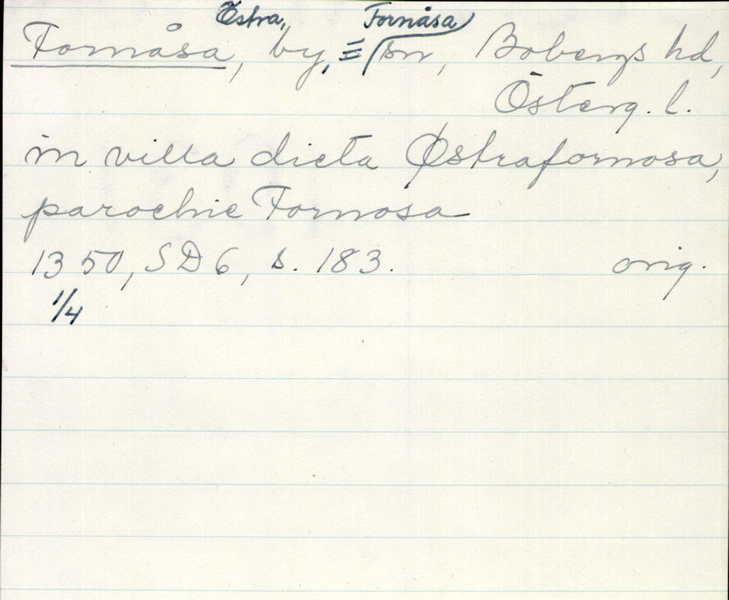 Östra, Fornåsa
Fornåsa, by, sn, Bobergs hd,
Österg. l.
in villa dicta Østrafornosa,
parochie Fornosa
1350, SD 6, s. 183. orig.
1/4